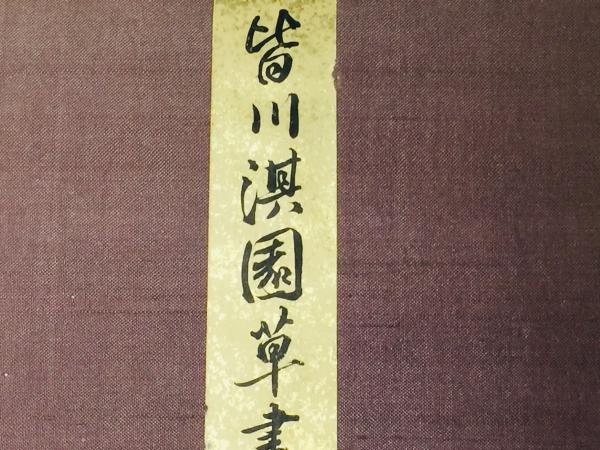 皆川淇園草書